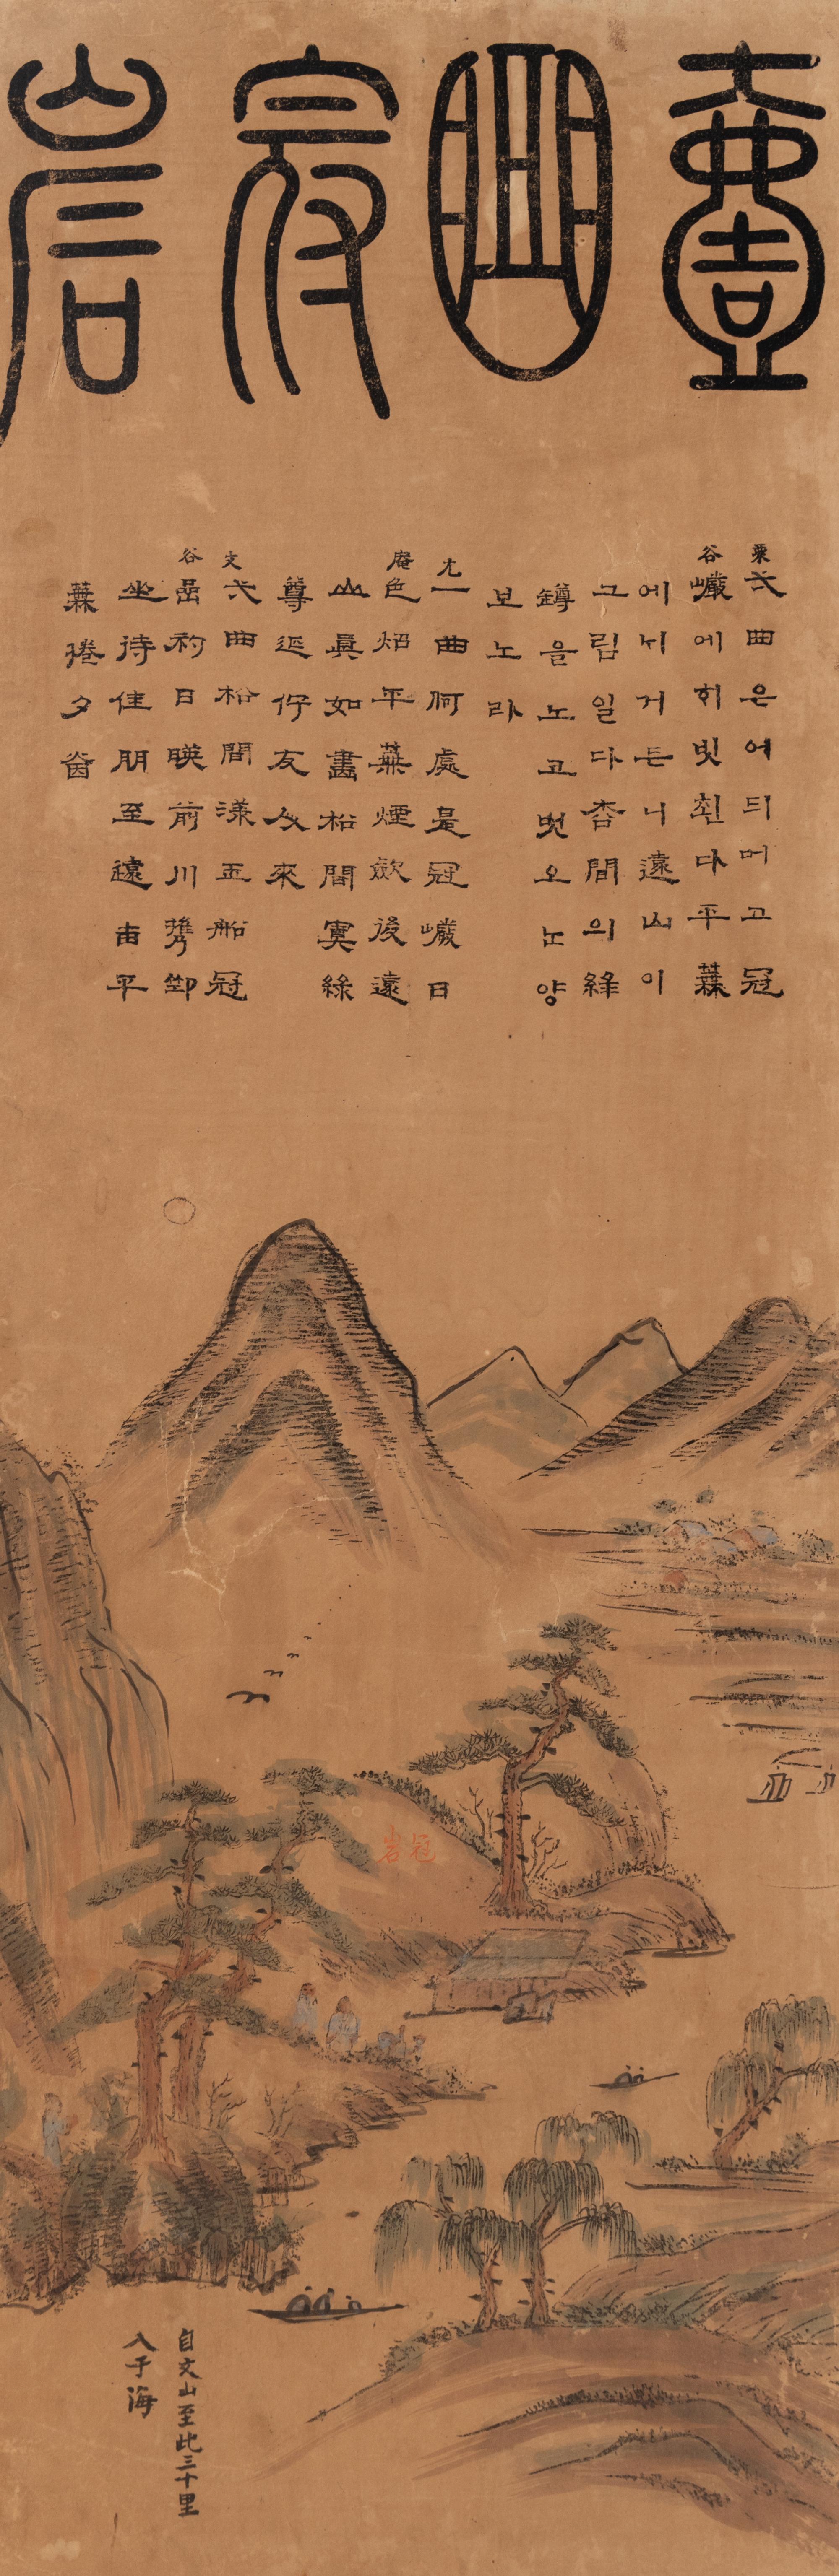 壹曲冠岩
栗
弌曲은어듸메고冠
谷
巗에ᄒᆡ빗쵠다平蕪
에ᄂᆡ거든니遠山이
그림일다枩間의綠
罇을노코벗오ᄂᆞᆫ양
보노라
尤
一曲何處是冠巗日
庵
色炤平蕪煙歛後遠
山眞如畵松間寘綠
尊延佇友人來
文
弌曲松間漾玉船冠
谷
嵒初日暎前川携笻
坐待佳朋至遠峀平
蕪捲夕
冠岩
自文山至此三十里
入于海